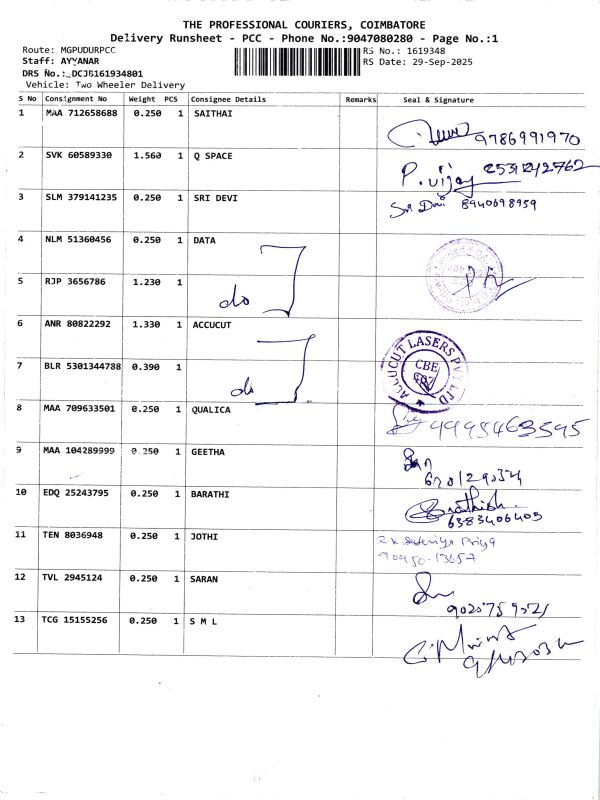 THE PROFESSIONAL COURIERS, COIMBATORE
Delivery Runsheet - PCC - Phone No.:9047080280 - Page No.:1
Route: MGPUDURPCC RS No.: 1619348
Staff: AYYANAR RS Date: 29-Sep-2025
DRS No.: DCJB161934801
Vehicle: Two Wheeler Delivery
S No Consignment No Weight PCS Consignee Details Remarks Seal & Signature
1 MAA 712658688 0.250 1 SAITHAI
9786991970
2 SVK 60589330 1.560 1 Q SPACE
P. vijay
3 SLM 379141235 0.250 1 SRI DEVI
Sri Devi 8940698959
4 NLM 51360456 0.250 1 DATA
5 RJP 3656786 1.230 1 do
6 ANR 80822292 1.330 1 ACCUCUT
ACCUCUT LASERS PVT LTD
CBE
7 BLR 5301344788 0.390 1 do
8 MAA 709633501 0.250 1 QUALICA
9995463595
9 MAA 104289999 0.250 1 GEETHA
10 EDQ 25243795 0.250 1 BARATHI
6383406405
11 TEN 8036948 0.250 1 JOTHI
Priya
90950-13657
12 TVL 2945124 0.250 1 SARAN
13 TCG 15155256 0.250 1 S M L